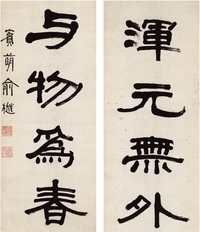 渾元無外
与物爲春
賓萌俞樾